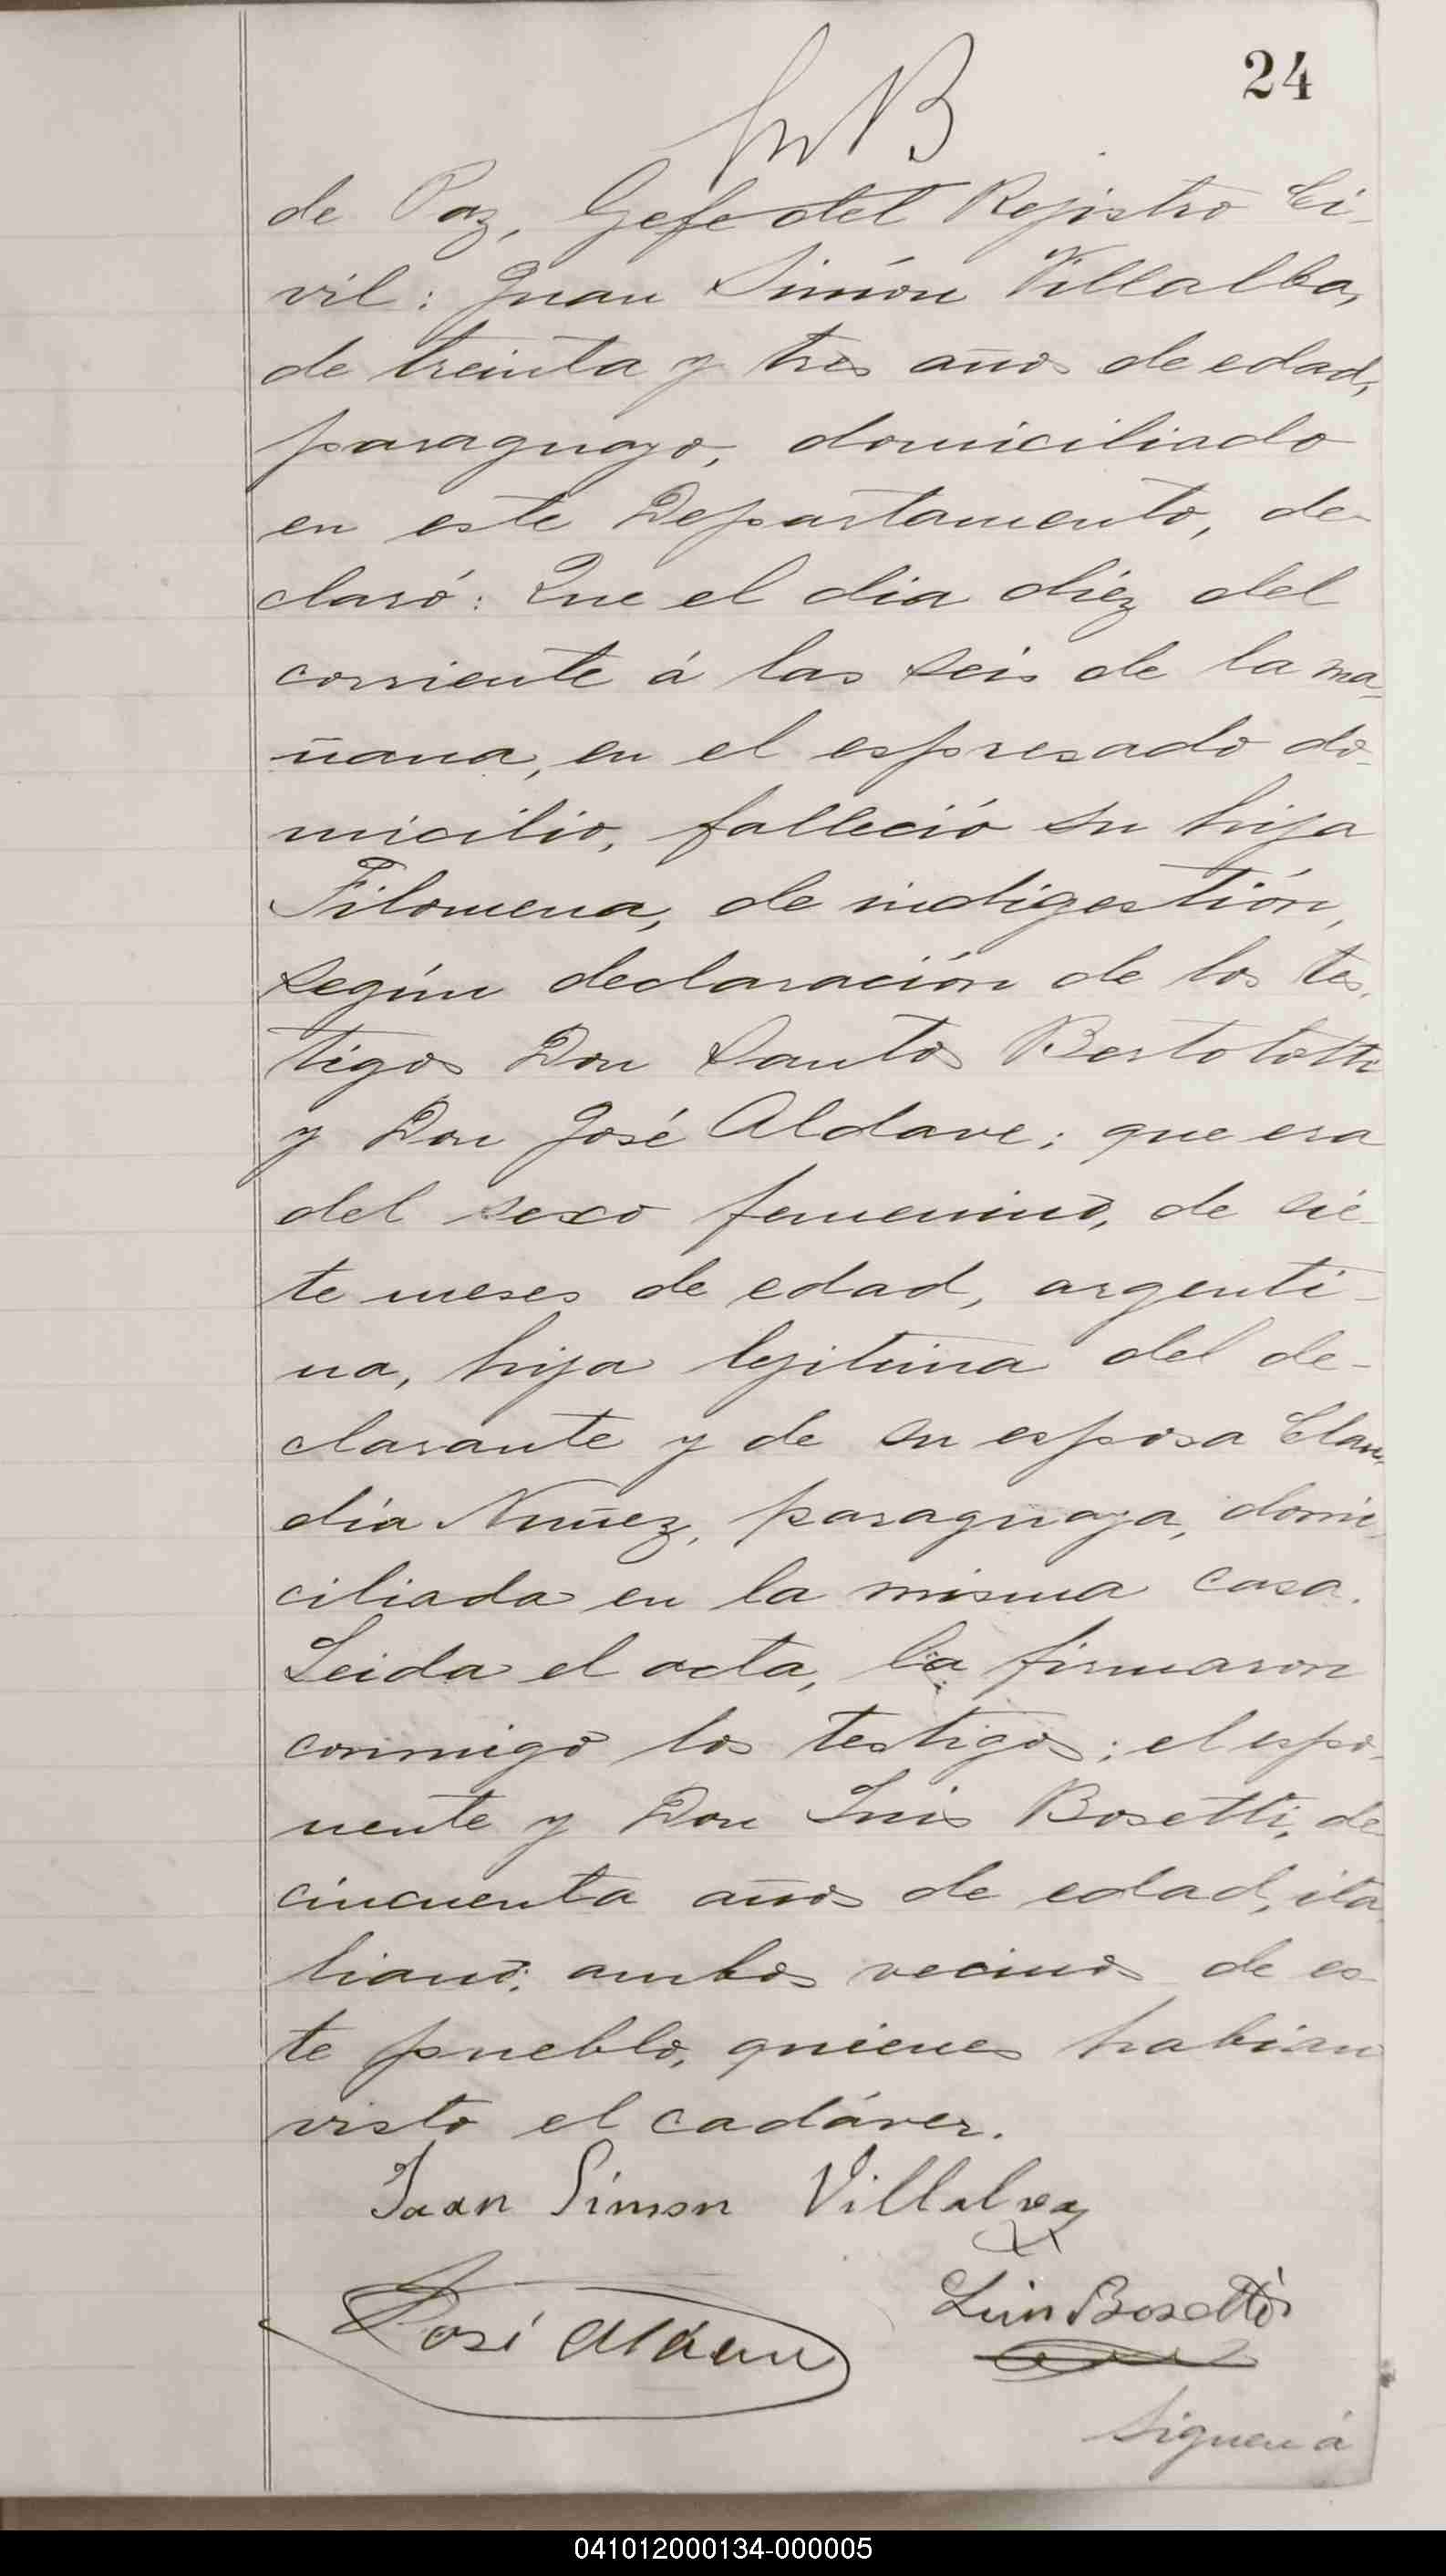 24
de Paz, Gefe del Rejistro Ci-
vil: Juan Simón Villalba,
de treinta y tres años de edad,
paraguayo, domiciliado
en este Departamento, de-
claró: Que el dia diéz del
corriente á las seis de la ma-
ñana, en el espresado do-
micilio, falleció su hija
Filomena, de indigestión,
según declaración de los tes-
tigos Don Santos Bertolotti
y Don José Aldave; que era
del sexo femenino, de sie-
te meses de edad, argenti-
na, hija lejitima del de-
clarante y de su esposa Clau-
dia Nuñez, paraguaya, domi-
ciliada en la misma casa.
Leida el acta, la firmaron
conmigo los testigos; el espo-
nente y Don Luis Bosetti, de
cincuenta años de edad, ita-
liano; ambos vecinos de es-
te pueblo, quienes habian
visto el cadáver.
Juan Simon Villalva
Luis Bosetti
José Aldave
Siguen á
041012000134-000005